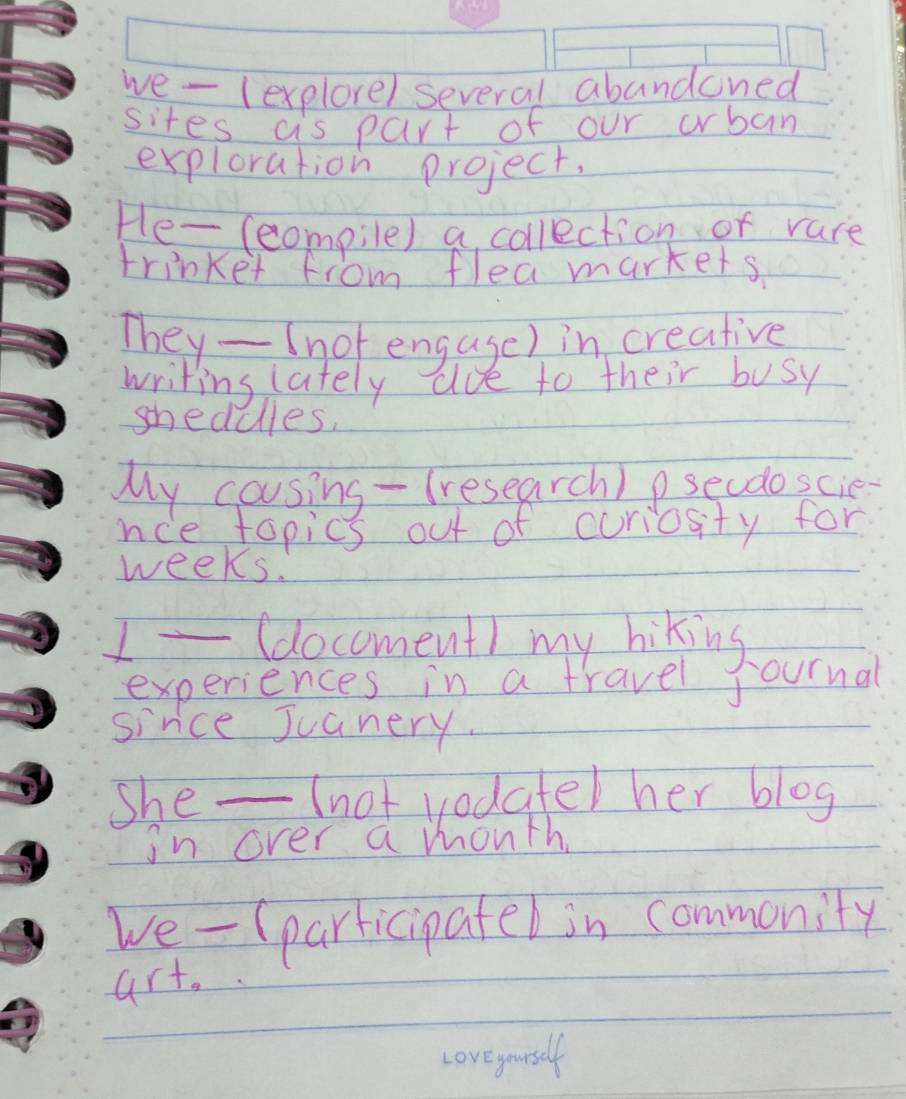 We — (explore) several abandoned
sites as part of our urban
exploration project.
He — (compile) a collection of rare
trinket from flea markets.
They — (not engage) in creative
writing lately due to their busy
sheddles.
My cousing — (research) pseudoscie-
nce topics out of curiosity for
weeks.
I — (document) my hiking
experiences in a travel journal
since Juanery.
She — (not update) her blog
in over a month.
We — (participate) in community
art.
LOVE yourself